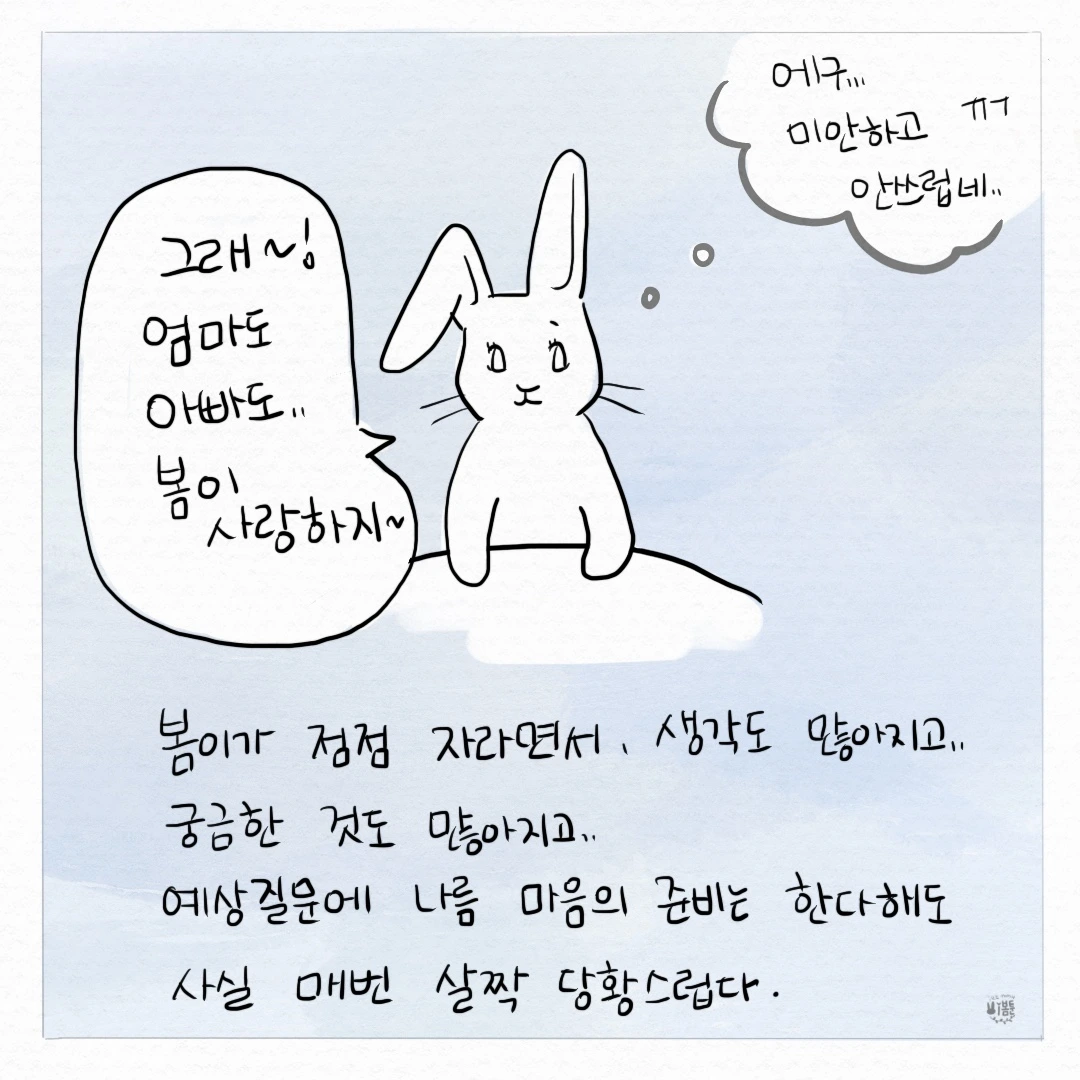 그래~!
엄마도
아빠도..
봄이
사랑하지~
에구...
미안하고 ㅠㅜ
안쓰럽네..
봄이가 점점 자라면서, 생각도 많아지고..
궁금한 것도 많아지고..
예상질문에 나름 마음의 준비는 한다해도
사실 매번 살짝 당황스럽다.